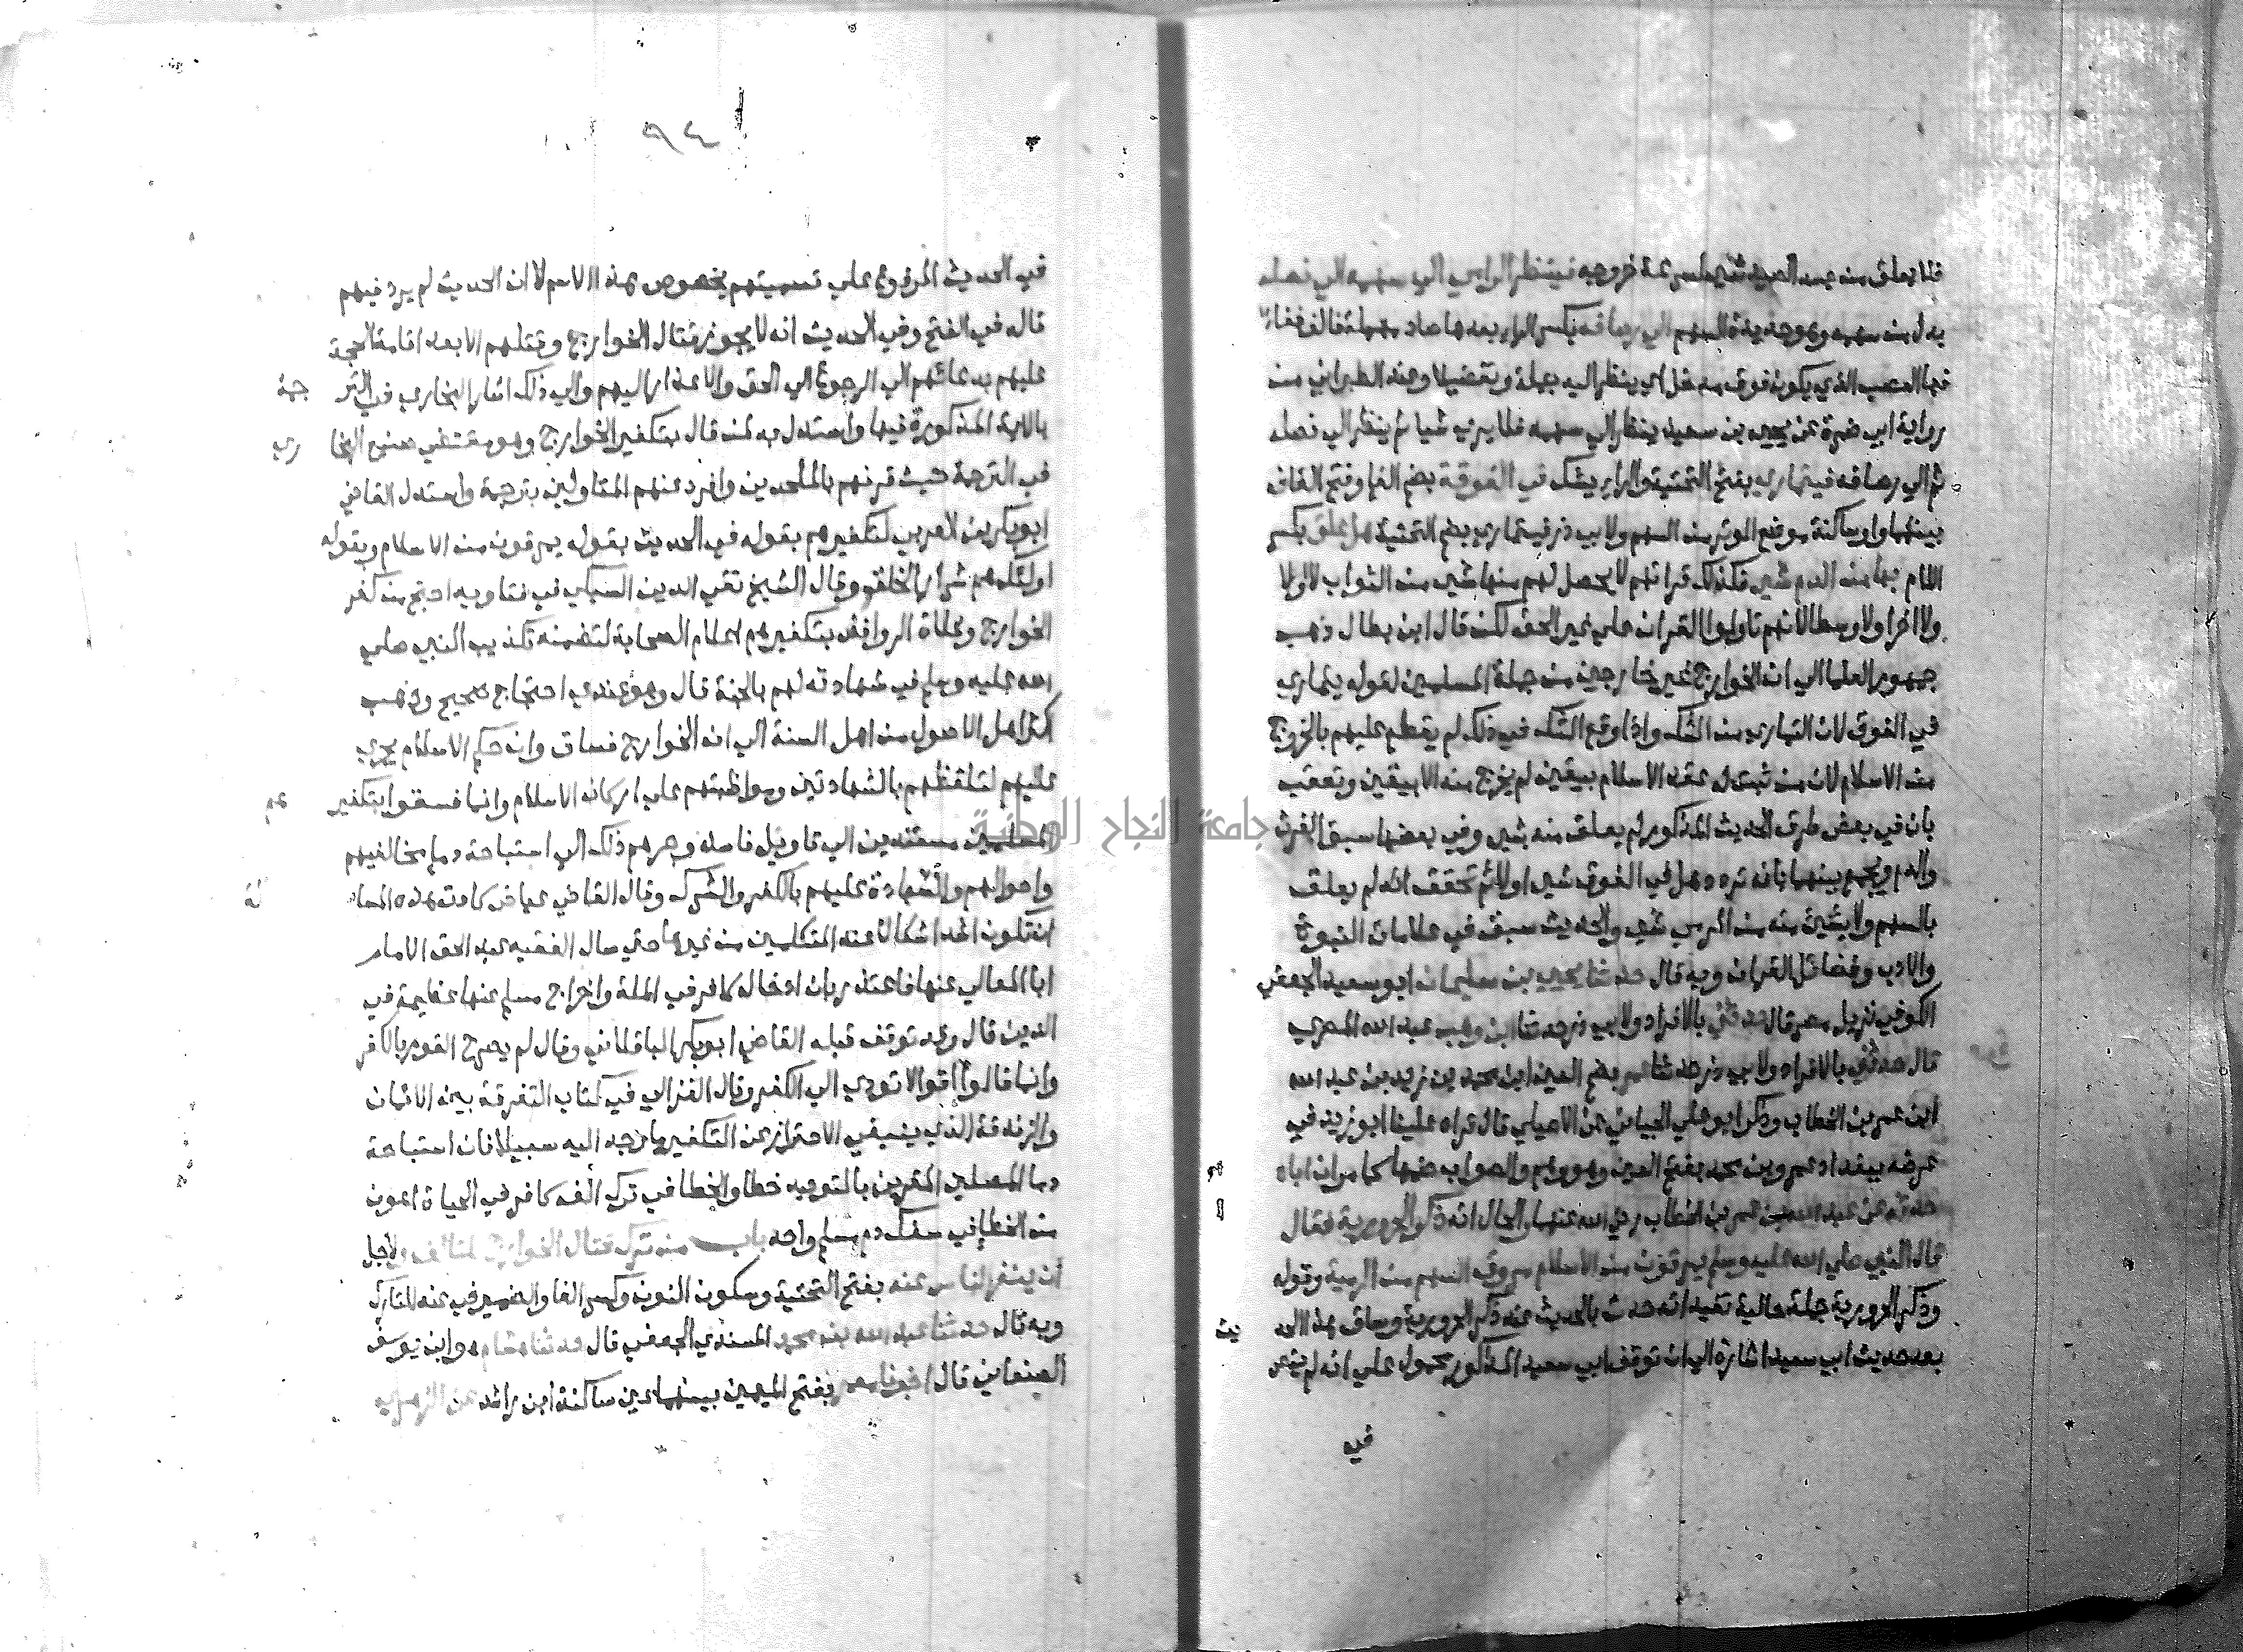 فما يعلق من جسد الصيد شيء لسرعة خروجه فينظر الرامي الي سهمه الي نصله
بدل من سهمه وهو حديدة السهم الي رصافه بكسر الراء بعدها صاد مهملة فالف ففاء
رواية ابي ضمرة عن يحيي بن سعيد ينظر الي سهمه فلا يري شيا ثم ينظر الي نصله
ثم الي رصافه فيتماري بفتح التحتية والراء يشك في الفوقة بضم الفا وفتح القاف
بينهما واو ساكنة موضع الوتر من السهم ولابي ذر فيتماري بضم التحتية هل علق بكسر
اللام بها من الدم شي فكذلك قراتهم لا يحصل لهم منها شي من الثواب لا اولا
ولا اخرا ولا وسطا لانهم تاولوا القران علي غير الحق لكن قال ابن بطال ذهب
جمهور العلما الي ان الخوارج غير خارجين من جملة المسلمين لقوله يتماري
في الفوق لان التماري من الشك واذا وقع الشك في ذلك لم يقطع عليهم بالخروج
من الاسلام لان من ثبت له عقد الاسلام بيقين لم يخرج منه الا بيقين وتعقب
بان في بعض طرق الحديث المذكور لم يعلق منه بشي وفي بعضها سبق الفرث
والدم ويجمع بينهما بانه تردد هل في الفوق شي اولا ثم تحقق انه لم يعلق
بالسهم ولا بشي منه من الرمي شي والحديث سبق في علامات النبوة
والادب وفضائل القران وبه قال حدثنا يحيي بن سليمان ابو سعيد الجعفي
الكوفي نزيل مصر قال حدثني بالافراد ولابي ذر حدثنا ابن وهب عبد الله المصري
قال حدثني بالافراد ولابي ذر حدثنا عمر بضم العين ابن محمد بن زيد بن عبد الله
ابن عمر بن الخطاب وذكر ابو علي الجياني عن الاصيلي قال قراه علينا ابو زيد في
عرضه ببغداد عمرو بن محمد بفتح العين وهو وهم والصواب ضمها كما مر ان اباه
حدثه عن عبد الله بن عمر بن الخطاب رضي الله عنهما والحال انه ذكر الحرورية فقال
قال النبي صلي الله عليه وسلم يمرقون من الاسلام مروق السهم من الرمية وقوله
وذكر الحرورية جملة حالية تفيد انه حدث بالحديث عند ذكر الحرورية وساق هذا الحد يث
بعد حديث ابي سعيد اشارة الي ان توقف ابي سعيد المذكور محمول علي انه لم ينص
في
٩٤
في الحديث المرفوع علي تسميتهم بخصوص هذا الاسم لا ان الحديث لم يرد فيهم
قاله في الفتح وفي الحديث انه لا يجوز قتال الخوارج وقتلهم الا بعد اقامة الحجة
عليهم بدعائهم الي الرجوع الي الحق والاعذار اليهم والي ذلك اشار البخاري في التر جمة
بالاية المذكورة فيها واستدل به لمن قال بتكفير الخوارج وهو مقتضي صنيع البخا ري
في الترجمة حيث قرنهم بالملحدين وافرد عنهم المتاولين بترجمة واستدل القاضي
ابو بكر بن العربي لتكفيرهم بقوله في الحديث بقوله يمرقون من الاسلام وبقوله
اولئك هم شرار الخلق وقال الشيخ تقي الدين السبكي في فتاويه احتج من كفر
الخوارج وغلاة الروافض بتكفيرهم اعلام الصحابة لتضمنه تكذيب النبي صلي
الله عليه وسلم في شهادته لهم بالجنة قال وهو عندي احتجاج صحيح وذهب
اكثر اهل الاصول من اهل السنة الي ان الخوارج فساق وان حكم الاسلام يجري
عليهم لتلفظهم بالشهادتين ومواظبتهم علي اركان الاسلام وانما فسقوا بتكفير هم
المسلمين مستندين الي تاويل فاسد وجرهم ذلك الي استباحة دما مخالفيهم
واموالهم والشهادة عليهم بالكفر والشرك وقال القاضي عياض كادت هذه المسا لة
ان تكون اشد اشكالا عند المتكلمين من غيرها حتي سال الفقيه عبد الحق الامام
ابا المعالي عنها فاعتذر بان ادخال كافر في الملة واخراج مسلم عنها عظيمة في
الدين قال وقد توقف قبله القاضي ابو بكر الباقلاني وقال لم يصرح القوم بالكفر
وانما قالوا اقوالا تودي الي الكفر وقال الغزالي في كتاب التفرقة بين الايمان
والزندقة الذي ينبغي الاحتراز عن التكفير ما وجد اليه سبيلا فان استباحة
دما المصلين المقرين بالتوحيد خطا والخطا في ترك الف كافر في الحياة اهون
من الخطا في سفك دم مسلم واحد باب من ترك قتال الخوارج للتالف ولاجل
ان ينفر الناس عنه بفتح التحتية وسكون النون وكسر الفا والضمير في عنه للتارك
وبه قال حدثنا عبد الله بن محمد المسندي الجعفي قال حدثنا هشام هو ابن يوسف
الصنعاني قال اخبرنا معمر بفتح الميمين بينهما عين ساكنة ابن راشد عن الزهري